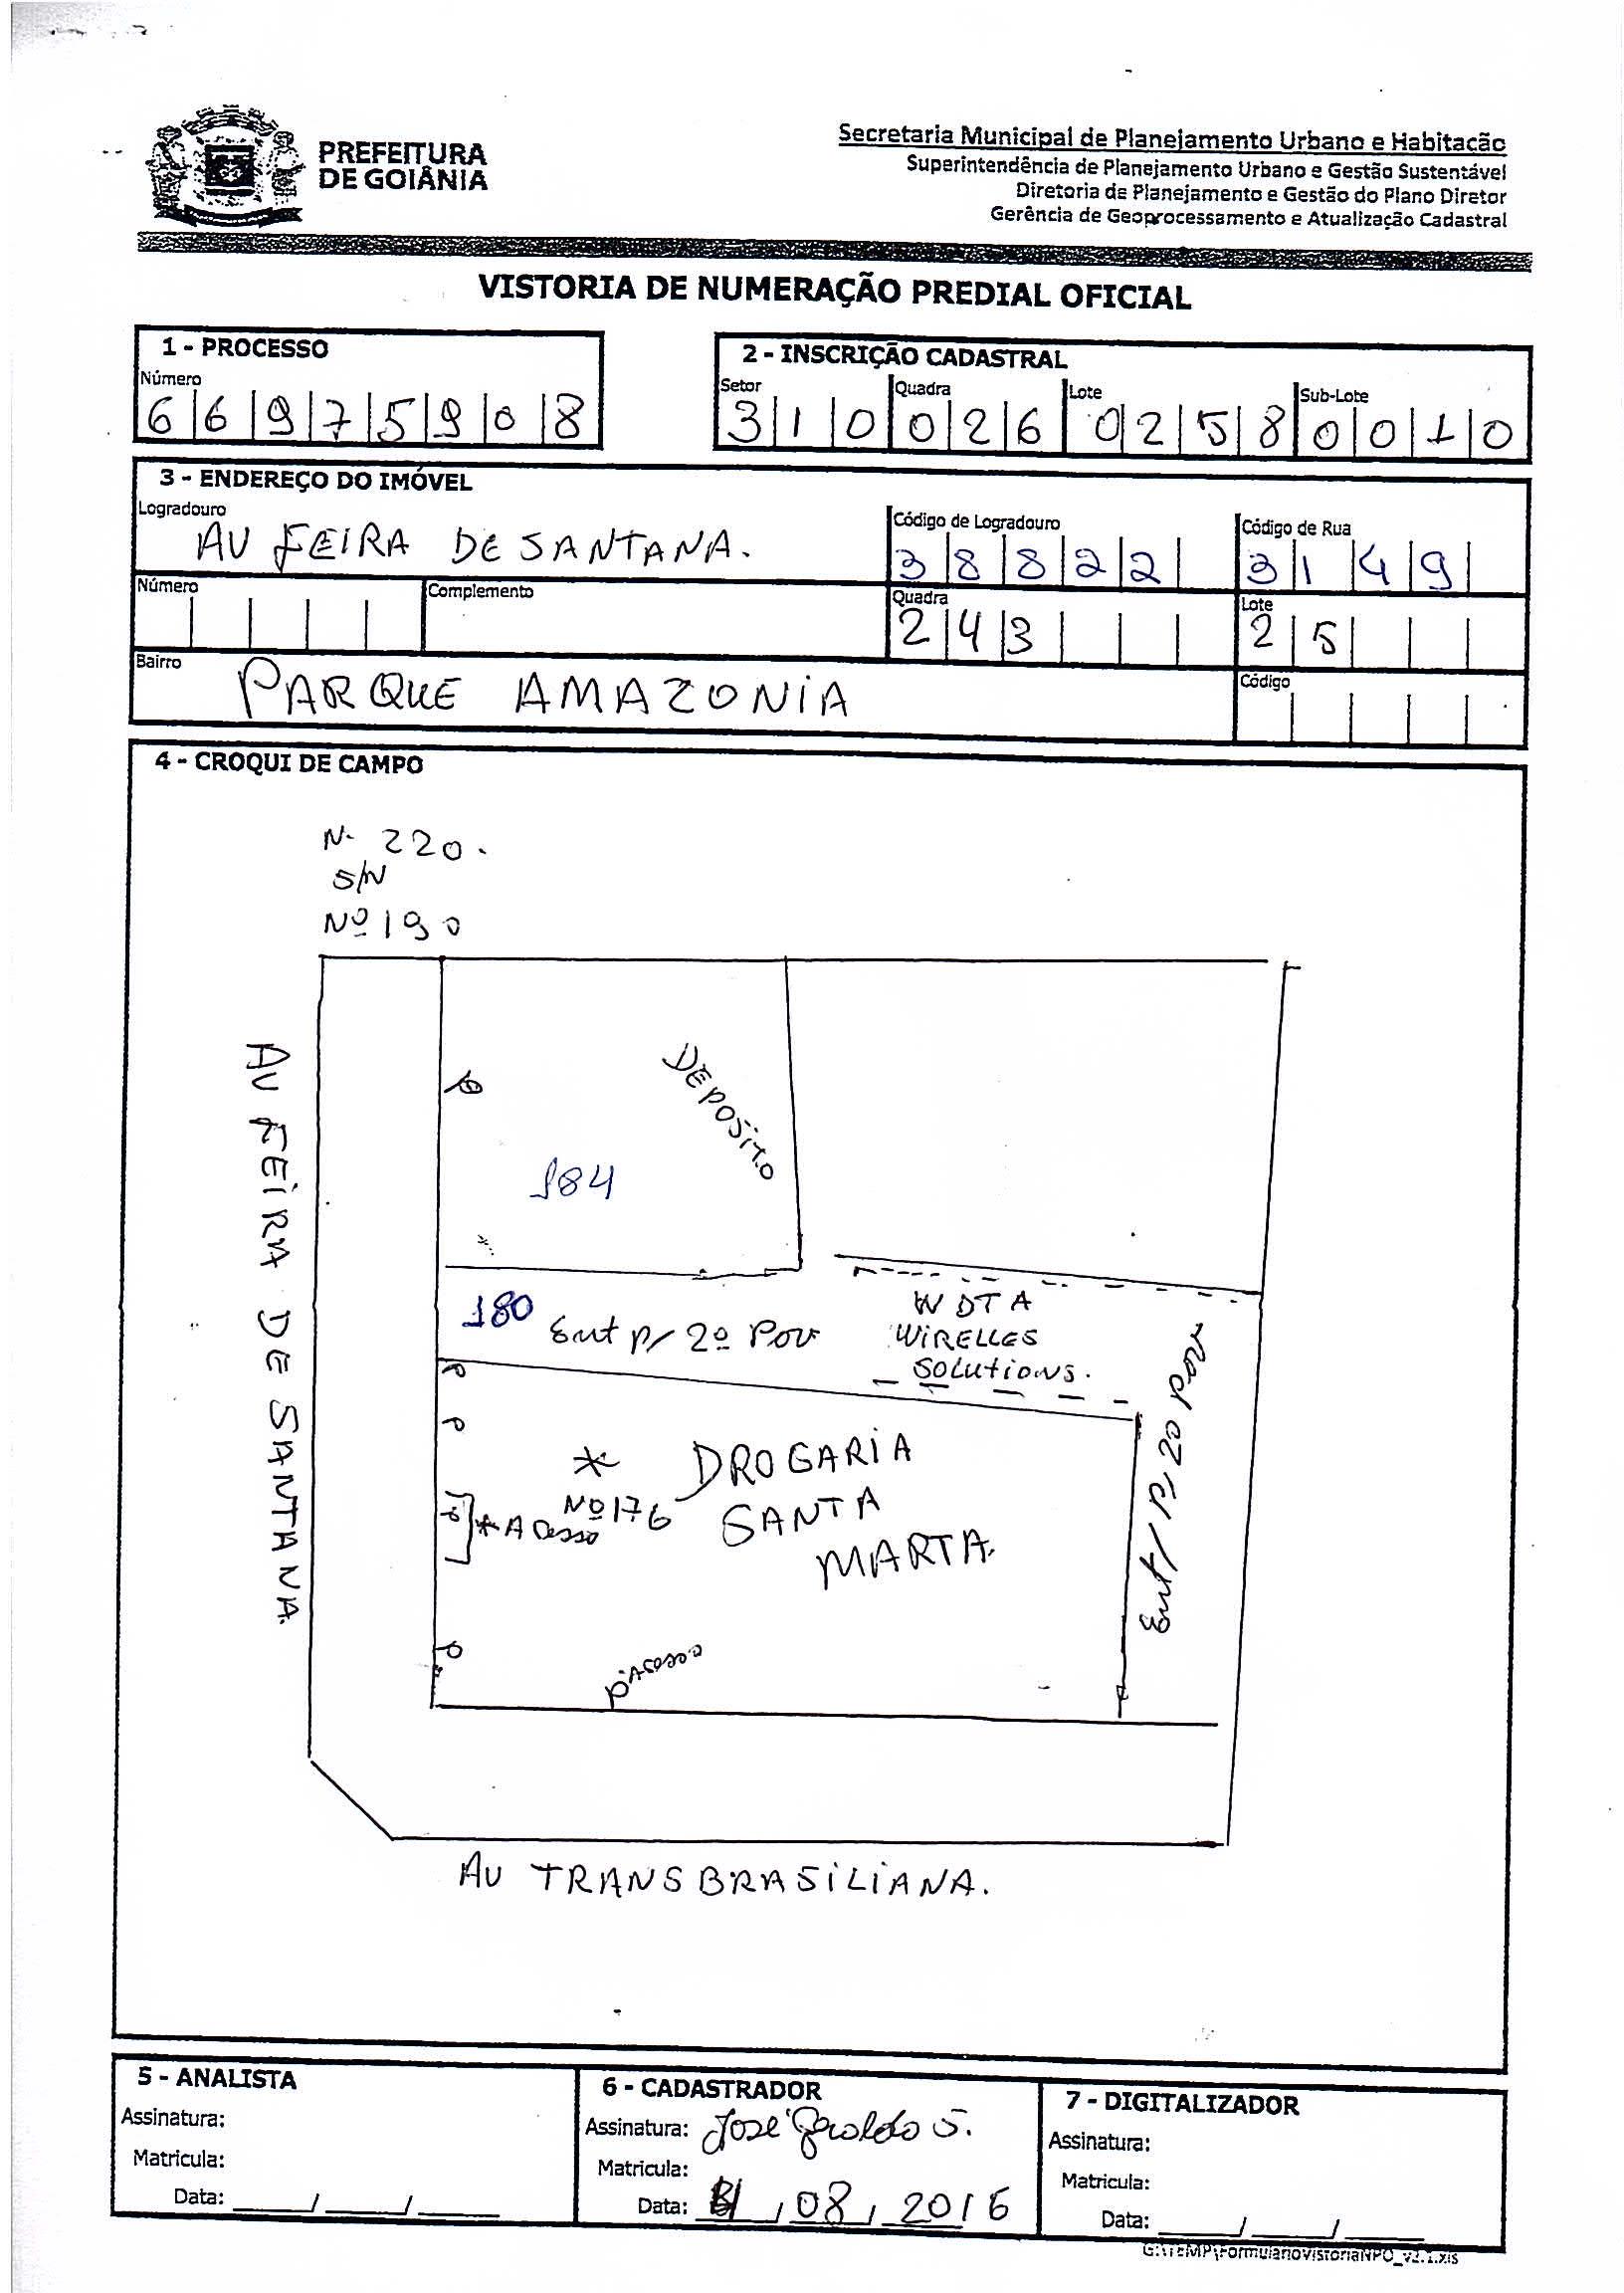 PREFEITURA
DE GOIÂNIA
Secretaria Municipal de Planejamento Urbano e Habitação
Superintendência de Planejamento Urbano e Gestão Sustentável
Diretoria de Planejamento e Gestão do Plano Diretor
Gerência de Geoprocessamento e Atualização Cadastral
VISTORIA DE NUMERAÇÃO PREDIAL OFICIAL
1 - PROCESSO
Número
66975908
2 - INSCRIÇÃO CADASTRAL
Setor Quadra Lote Sub-Lote
310 026 0258 0010
3 - ENDEREÇO DO IMÓVEL
Logradouro Código de Logradouro Código de Rua
AV FEIRA DE SANTANA. 38822 3149
Número Complemento Quadra Lote
243 25
Bairro Código
PARQUE AMAZONIA
4 - CROQUI DE CAMPO
N. 220.
S/N
Nº 190
AV FEIRA DE SANTANA.
DEPOSITO
184
180 Ent p/ 2º Pov
WDTA
WIRELLES
SOLUTIONS.
Ent p/ 2º Pov
* DROGARIA
Nº 176 SANTA
MARTA.
* Acesso
Acesso
AV TRANSBRASILIANA.
5 - ANALISTA
Assinatura:
Matricula:
Data: ___/___/___
6 - CADASTRADOR
Assinatura: José Geraldo S.
Matricula:
Data: / 08 / 2016
7 - DIGITALIZADOR
Assinatura:
Matricula:
Data: ___/___/___
G:\TEMP\FormularioVistoriaNPO_v2.1.xls